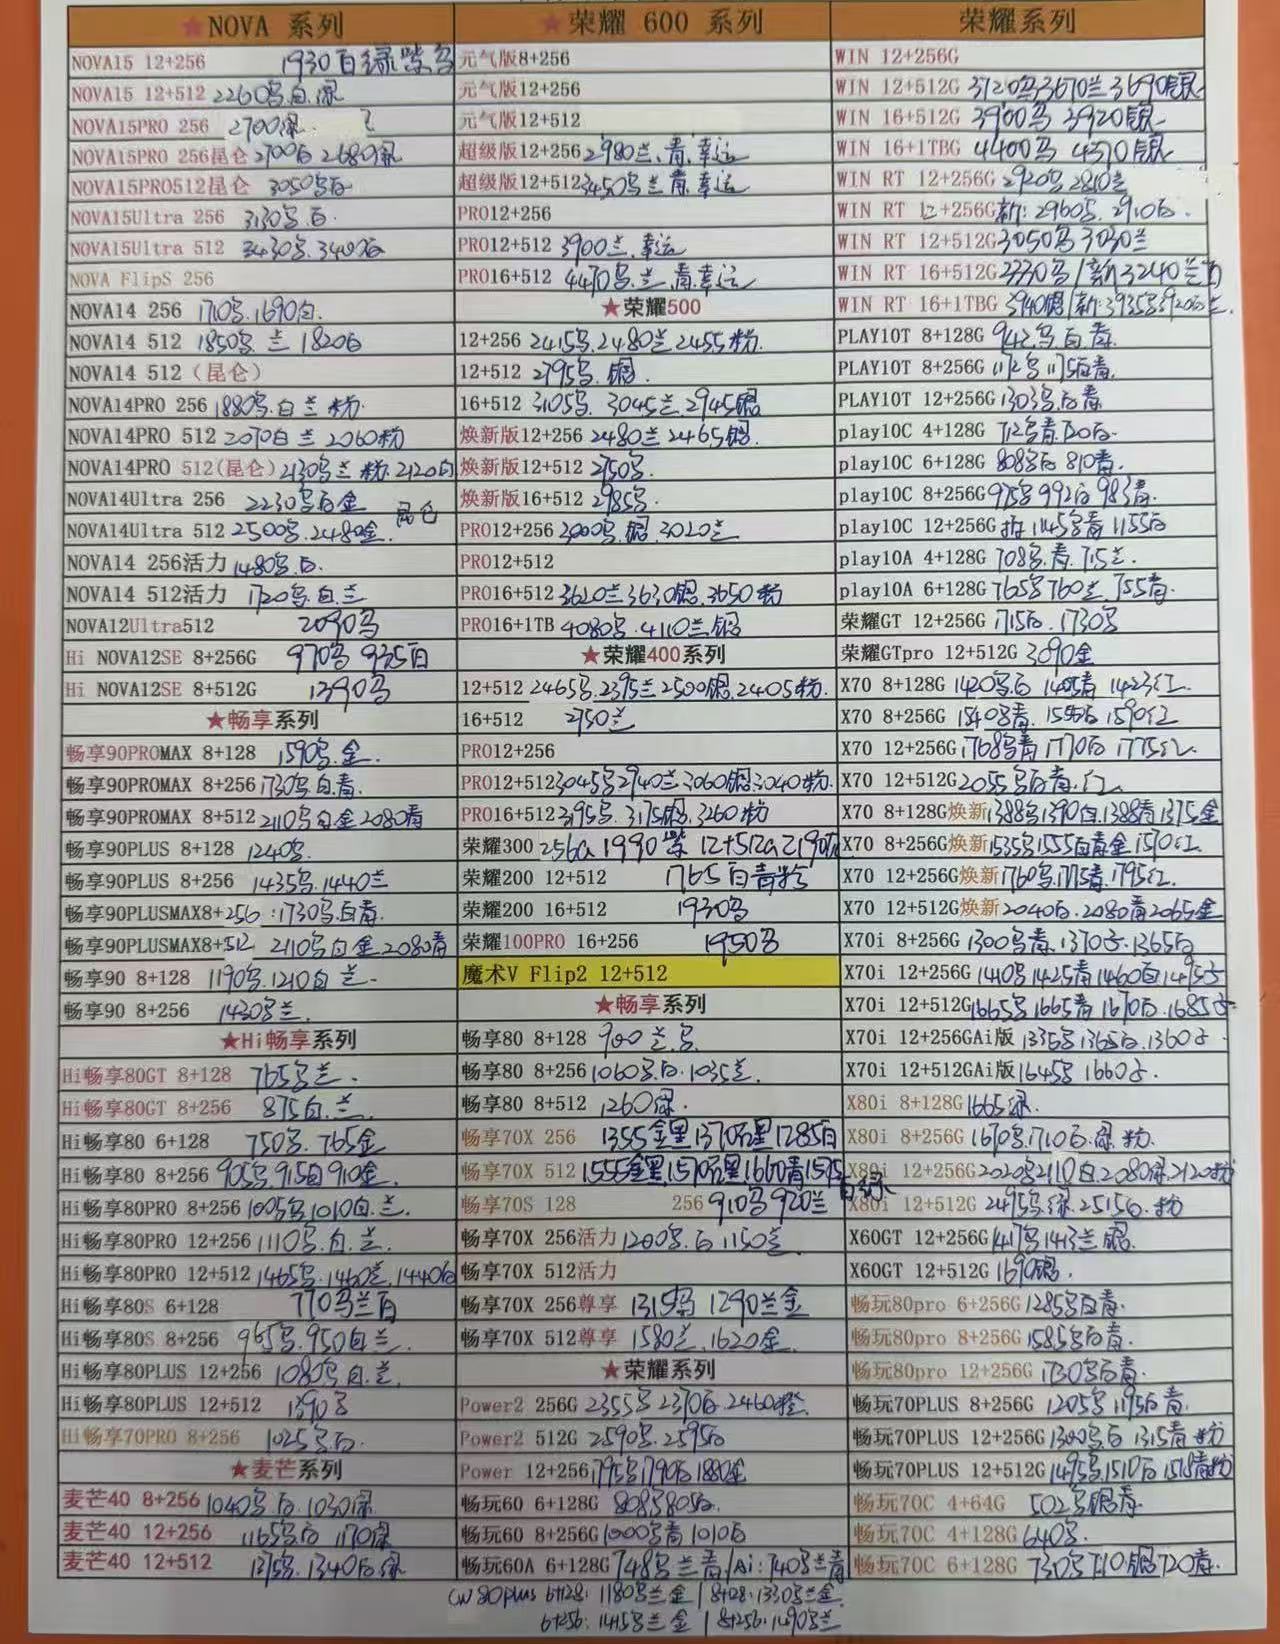 ★NOVA 系列
NOVA15 12+256 1930白绿紫乌
NOVA15 12+512 2260乌.白.绿
NOVA15PRO 256 2700绿.
NOVA15PRO 256昆仑 2700白 2680绿
NOVA15PRO512昆仑 3050乌白
NOVA15Ultra 256 3130乌.白.
NOVA15Ultra 512 3430乌.3400白
NOVA FlipS 256
NOVA14 256 1710乌.1690白.
NOVA14 512 1850乌.兰 1820白
NOVA14 512（昆仑）
NOVA14PRO 256 1880乌.白兰 粉.
NOVA14PRO 512 2070白兰 2060粉
NOVA14PRO 512(昆仑) 2130乌兰 粉.2120白
NOVA14Ultra 256 2230乌白金
NOVA14Ultra 512 2500乌.2480金. 昆仑
NOVA14 256活力 1480乌.白.
NOVA14 512活力 1720乌.白.兰
NOVA12Ultra512 2090乌
Hi NOVA12SE 8+256G 970乌 935白
Hi NOVA12SE 8+512G 1290乌
★畅享系列
畅享90PROMAX 8+128 1590乌.金.
畅享90PROMAX 8+256 1730乌白.青.
畅享90PROMAX 8+512 2110乌白金2080青
畅享90PLUS 8+128 1240乌.
畅享90PLUS 8+256 1435乌.1440兰
畅享90PLUSMAX8+256 :1730乌.白青.
畅享90PLUSMAX8+512 2110乌白金.2080青
畅享90 8+128 1190乌.1210白 兰.
畅享90 8+256 1430乌兰.
★Hi畅享系列
Hi畅享80GT 8+128 765乌兰.
Hi畅享80GT 8+256 875白.兰
Hi畅享80 6+128 750乌.765金
Hi畅享80 8+256 905乌.915白910金.
Hi畅享80PRO 8+256 1005乌1010白.兰.
Hi畅享80PRO 12+256 1110乌.白.兰.
Hi畅享80PRO 12+512 1465乌.1460兰.1440白
Hi畅享80S 6+128 770乌兰白
Hi畅享80S 8+256 965乌.950白.兰
Hi畅享80PLUS 12+256 1080乌.白.兰.
Hi畅享80PLUS 12+512 1390乌
Hi畅享70PRO 8+256 1025乌白.
★麦芒系列
麦芒40 8+256 1040乌白.1030绿
麦芒40 12+256 1165乌白 1170绿
麦芒40 12+512 1375乌.1340白绿
★荣耀 600 系列
元气版8+256
元气版12+256
元气版12+512
超级版12+256 2980兰.青.幸运
超级版12+512 3450乌兰青.幸运
PRO12+256
PRO12+512 3900兰.幸运
PRO16+512 4470乌.兰.青.幸运
★荣耀500
12+256 2415乌.2480兰 2455粉.
12+512 2795乌.银.
16+512 3105乌. 3045兰.2945银
焕新版12+256 2480兰2465银.
焕新版12+512 2750乌.
焕新版16+512 2985乌.
PRO12+256 3000乌.银.3020兰
PRO12+512
PRO16+512 3620兰3630银.3650粉
PRO16+1TB 4080乌.4110兰银
★荣耀400系列
12+512 2465乌.2395兰2500银.2405粉.
16+512 2750兰
PRO12+256
PRO12+512 3045乌2940兰.3060银.3040粉.
PRO16+512 3195乌. 3175银.3260粉
荣耀300 256G 1990紫 12+512G 2190
荣耀200 12+512 1765白青粉
荣耀200 16+512 1930乌
荣耀100PRO 16+256 1950乌
魔术V Flip2 12+512
★畅享系列
畅享80 8+128 900兰.乌
畅享80 8+256 1060乌.白.1035兰.
畅享80 8+512 1260绿.
畅享70X 256 1355金黑1370 黑1285白
畅享70X 512 1555金黑1570 黑1660青1575白绿
畅享70S 128 256 910乌 920兰
畅享70X 256活力 1200乌.白 1150兰
畅享70X 512活力
畅享70X 256尊享 1315乌 1290兰金
畅享70X 512尊享 1580兰.1620金.
★荣耀系列
Power2 256G 2355乌2370白.2460橙.
Power2 512G 2590乌.2595白
Power 12+256 1795乌1790白1880金
畅玩60 6+128G 808乌805白.
畅玩60 8+256G 1000乌青1010白
畅玩60A 6+128G 748乌兰青/Ai:740乌兰青
荣耀系列
WIN 12+256G
WIN 12+512G 3720乌3670兰 3690银
WIN 16+512G 3900乌 3920银
WIN 16+1TBG 4400乌 4370银
WIN RT 12+256G 2920乌2810兰
WIN RT 12+256G新:2960乌.2910白.
WIN RT 12+512G 3050乌3030兰
WIN RT 16+512G 3330乌/新3240兰白
WIN RT 16+1TBG 3940银/新:3935乌3920白兰.
PLAY10T 8+128G 942乌白青.
PLAY10T 8+256G 1172乌1175白青.
PLAY10T 12+256G 1303乌.白青
play10C 4+128G 712乌青720白.
play10C 6+128G 808乌白810青.
play10C 8+256G 975乌992白983青.
play10C 12+256G 1145乌青1155白
play10A 4+128G 708乌.青.715兰.
play10A 6+128G 765乌760兰 755青.
荣耀GT 12+256G 1715白.1730乌
荣耀GTpro 12+512G 3090金
X70 8+128G 1420乌白 1425青 1423红.
X70 8+256G 1540乌青. 1555白1590红
X70 12+256G 1768乌青1770白1775红.
X70 12+512G 2055乌白青.红
X70 8+128G焕新1388乌1390白.1388青1375金
X70 8+256G焕新1535乌1555白青金1570红.
X70 12+256G焕新1760乌1775青.1795红.
X70 12+512G焕新2040白.2080青2065金
X70i 8+256G 1300乌青.1370子.1365白
X70i 12+256G 1410乌1425青1460白1495子
X70i 12+512G 1665乌1665青1670白.1685子
X70i 12+256GAi版 1335乌1365白.1360子.
X70i 12+512GAi版 1645乌1660子.
X80i 8+128G 1665绿.
X80i 8+256G 1670乌1710白.绿.粉.
X80i 12+256G 2020乌2110白.2080绿2120粉
X80i 12+512G 2495乌绿.2515白.粉
X60GT 12+256G 1417乌1413兰银.
X60GT 12+512G 1690银.
畅玩80pro 6+256G 1285乌白青.
畅玩80pro 8+256G 1585乌白青.
畅玩80pro 12+256G 1730乌白青.
畅玩70PLUS 8+256G 1205乌1195白青.
畅玩70PLUS 12+256G 1300乌白1315青粉
畅玩70PLUS 12+512G 1495乌1510白1515青粉
畅玩70C 4+64G 502乌银青.
畅玩70C 4+128G 640乌.
畅玩70C 6+128G 730乌710银720青.
CW 80plus 6+128:1180乌兰金/8+128:1330乌兰金
6+256:1415乌兰金/8+256:1490乌兰